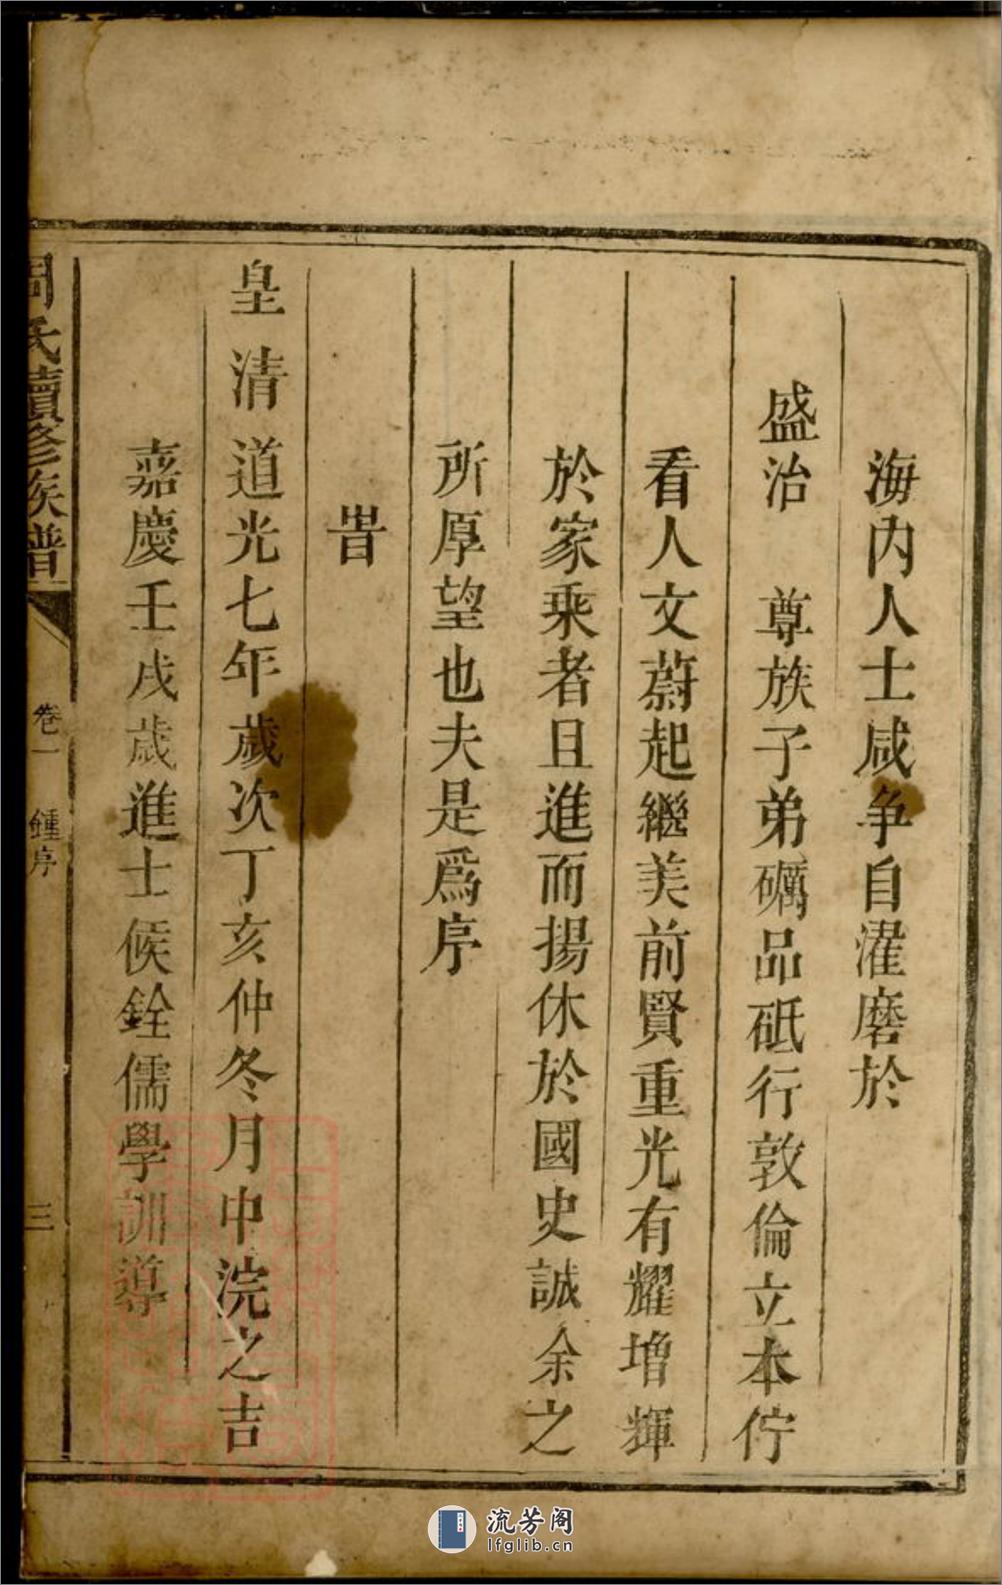 海内人士咸争自濯磨於
盛治　尊族子弟礪品砥行敦倫立本佇
看人文蔚起繼美前賢重光有耀增輝
於家乘者且進而揚休於國史誠余之
所厚望也夫是爲序
旹
皇清道光七年歲次丁亥仲冬月中浣之吉
嘉慶壬戌歲進士候銓儒學訓導
周氏續修族譜
卷一　鍾序
三
流芳阁
lfglib.cn